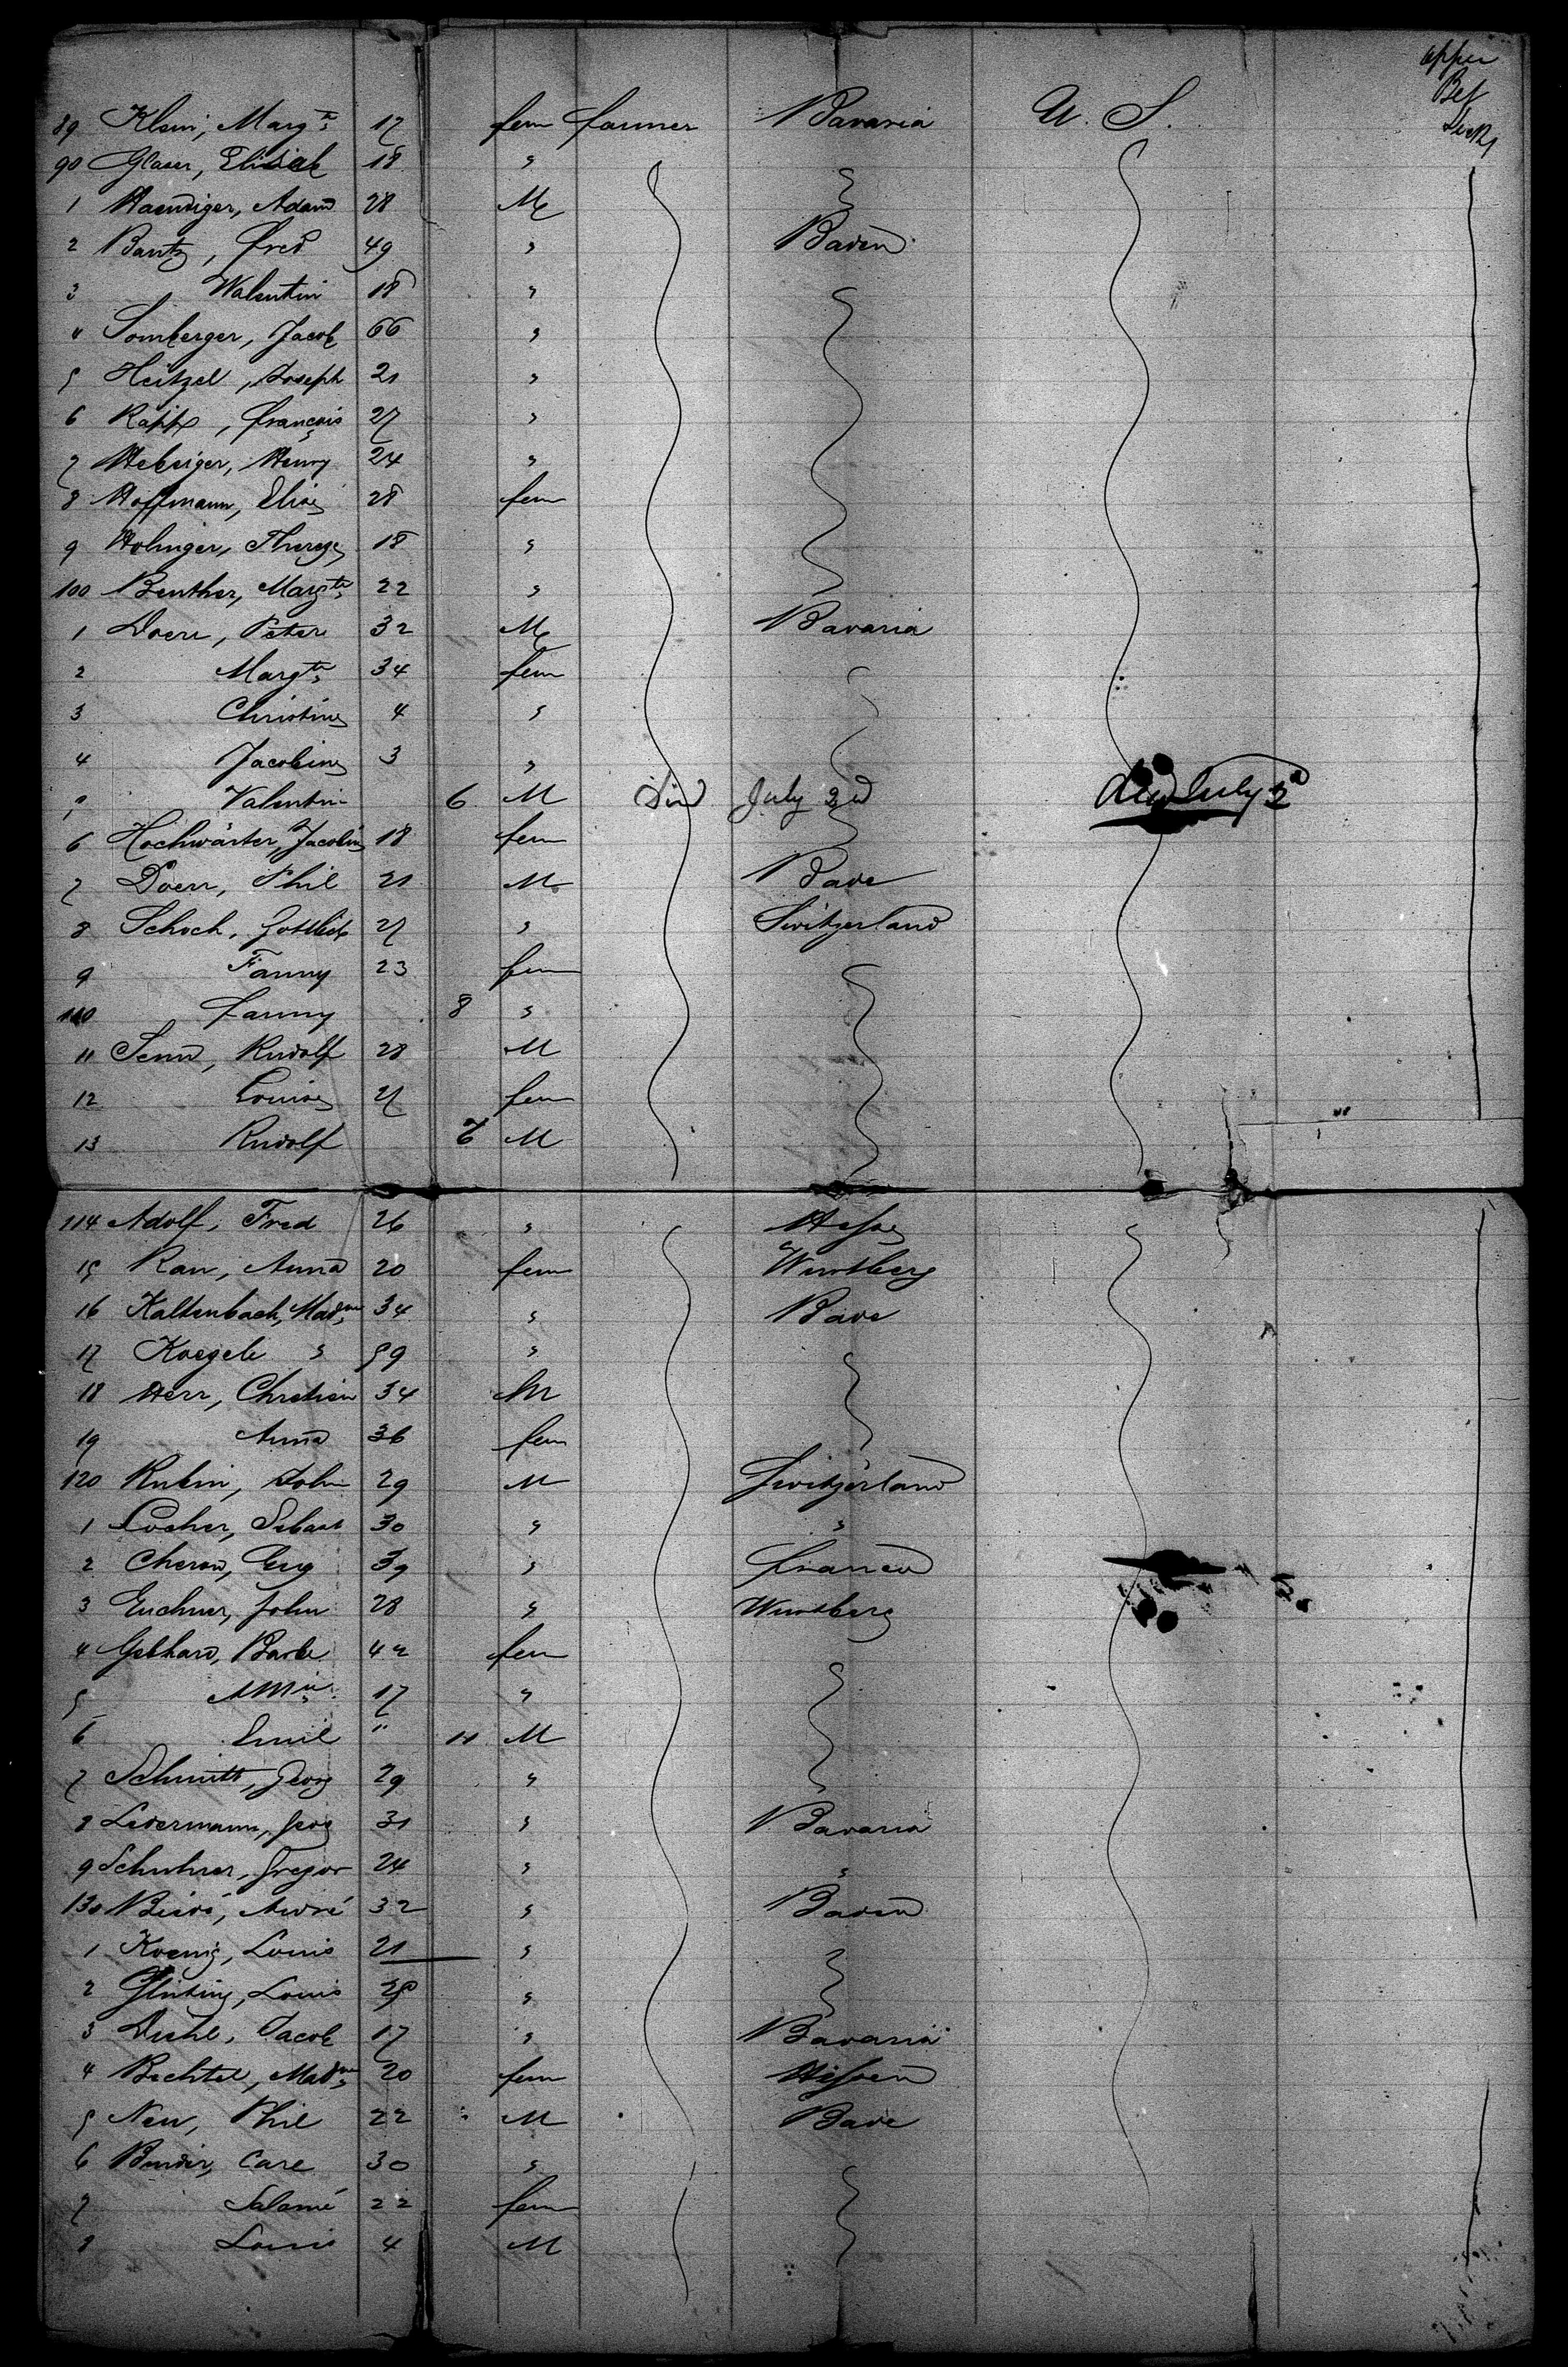 upper
Bet
Decks
89 Klein, Margte 17 fem farmer Bavaria U. S.
90 Glaser, Elisab 18 "
1 Haendiger, Adam 28 M
2 Bantz, Fred 49 " Baden
3 Valentin 18 "
4 Somberger, Jacob 66 "
5 Heitzel, Joseph 21 "
6 Rapp, François 27 "
7 Heberger, Henry 24 "
8 Hoffmann, Elise 28 fem
9 Holinger, Therese 18 "
100 Benther, Margte 22 "
1 Doerr, Peter 32 M Bavaria
2 Margte 34 fem
3 Christine 4 "
4 Jacobine 3 "
5 Valentin 6 M Died July 2d died July 2d
6 Hochwärter, Jacobine 18 fem
7 Doerr, Phil 21 M Bade
8 Schoch, Gottlieb 27 " Switzerland
9 Fanny 23 fem
110 Fanny 8 "
11 Senn, Rudolf 28 M
12 Louise 27 fem
13 Rudolf 6 M
114 Adolf, Fred 26 " Hesse
15 Rau, Anna 20 fem Wurtberg
16 Kaltenbach, Madme 34 " Bade
17 Koegele " 59 "
18 Herr, Chretien 34 M
19 Anna 36 fem
120 Rubin, John 29 M Switzerland
1 Locher, Sebast 30 " "
2 Cheron, Eug 39 " France
3 Euchner, John 28 " Wurtberg
4 Gebhard, Barbe 42 fem
5 AMie 17 "
6 Emil " 11 M
7 Schmitt, Georg 29 "
8 Ledermann, Georg 31 " Bavaria
9 Schuhrer, Gregor 24 " "
130 André 32 " Baden
1 Koenig, Louis 21 "
2 Louis "
3 Diehl, Jacob 17 " Bavaria
4 Bechtel, Madme 20 fem Hessen
5 Neu, Phil 22 M Bade
6 Binder, Carl 30 "
7 Salomé 22 fem
8 Louis 4 M